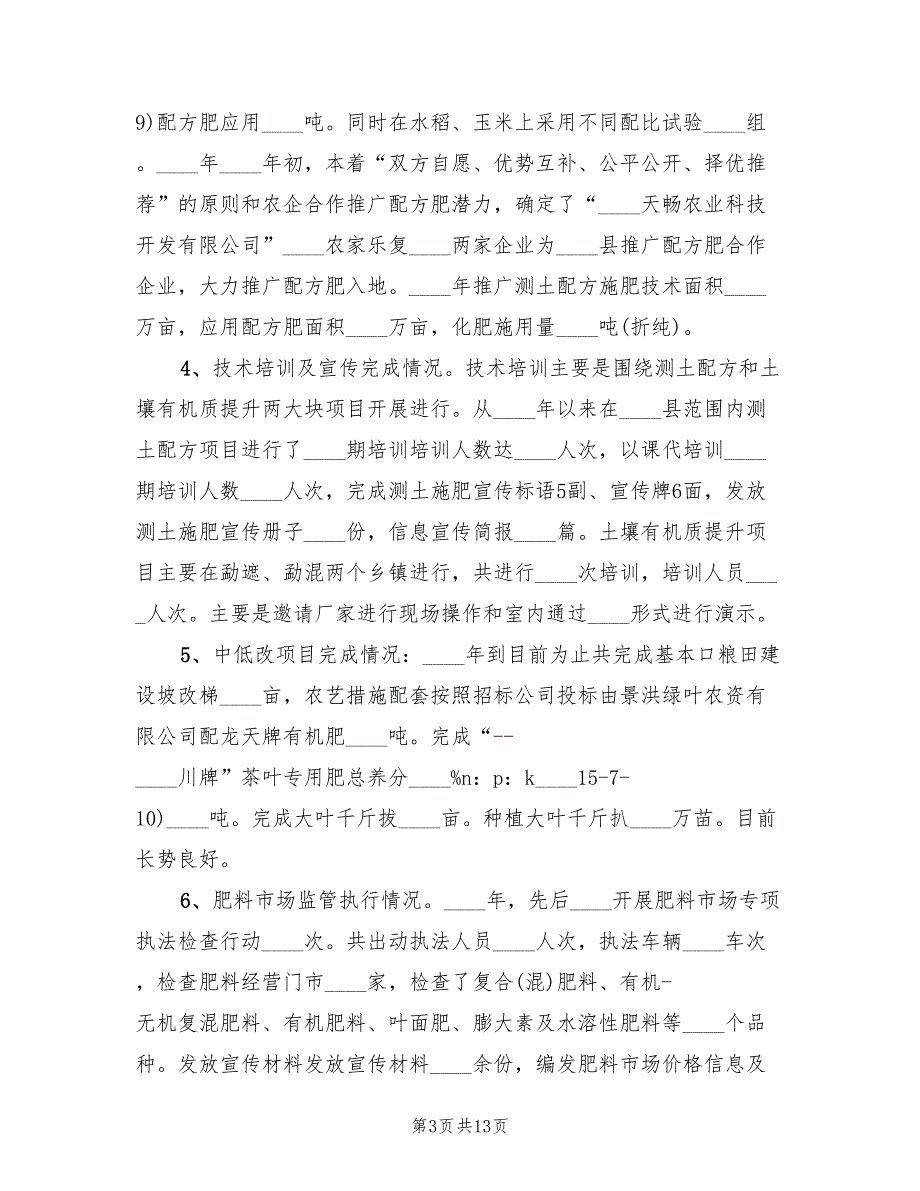 9)配方肥应用____吨。同时在水稻、玉米上采用不同配比试验____组
。____年____年初，本着“双方自愿、优势互补、公平公开、择优推
荐”的原则和农企合作推广配方肥潜力，确定了“____天畅农业科技
开发有限公司”____农家乐复____两家企业为____县推广配方肥合作
企业，大力推广配方肥入地。____年推广测土配方施肥技术面积____
万亩，应用配方肥面积____万亩，化肥施用量____吨(折纯)。
4、技术培训及宣传完成情况。技术培训主要是围绕测土配方和土
壤有机质提升两大块项目开展进行。从____年以来在____县范围内测
土配方项目进行了____期培训培训人数达____人次，以课代培训____
期培训人数____人次，完成测土施肥宣传标语5副、宣传牌6面，发放
测土施肥宣传册子____份，信息宣传简报____篇。土壤有机质提升项
目主要在勐遮、勐混两个乡镇进行，共进行____次培训，培训人员___
_人次。主要是邀请厂家进行现场操作和室内通过____形式进行演示。
5、中低改项目完成情况：____年到目前为止共完成基本口粮田建
设坡改梯____亩，农艺措施配套按照招标公司投标由景洪绿叶农资有
限公司配龙天牌有机肥____吨。完成“--
____川牌”茶叶专用肥总养分____%n：p：k____15-7-
10)____吨。完成大叶千斤拔____亩。种植大叶千斤扒____万苗。目前
长势良好。
6、肥料市场监管执行情况。____年，先后____开展肥料市场专项
执法检查行动____次。共出动执法人员____人次，执法车辆____车次
，检查肥料经营门市____家，检查了复合(混)肥料、有机-
无机复混肥料、有机肥料、叶面肥、膨大素及水溶性肥料等____个品
种。发放宣传材料发放宣传材料____余份，编发肥料市场价格信息及
第3页共13页